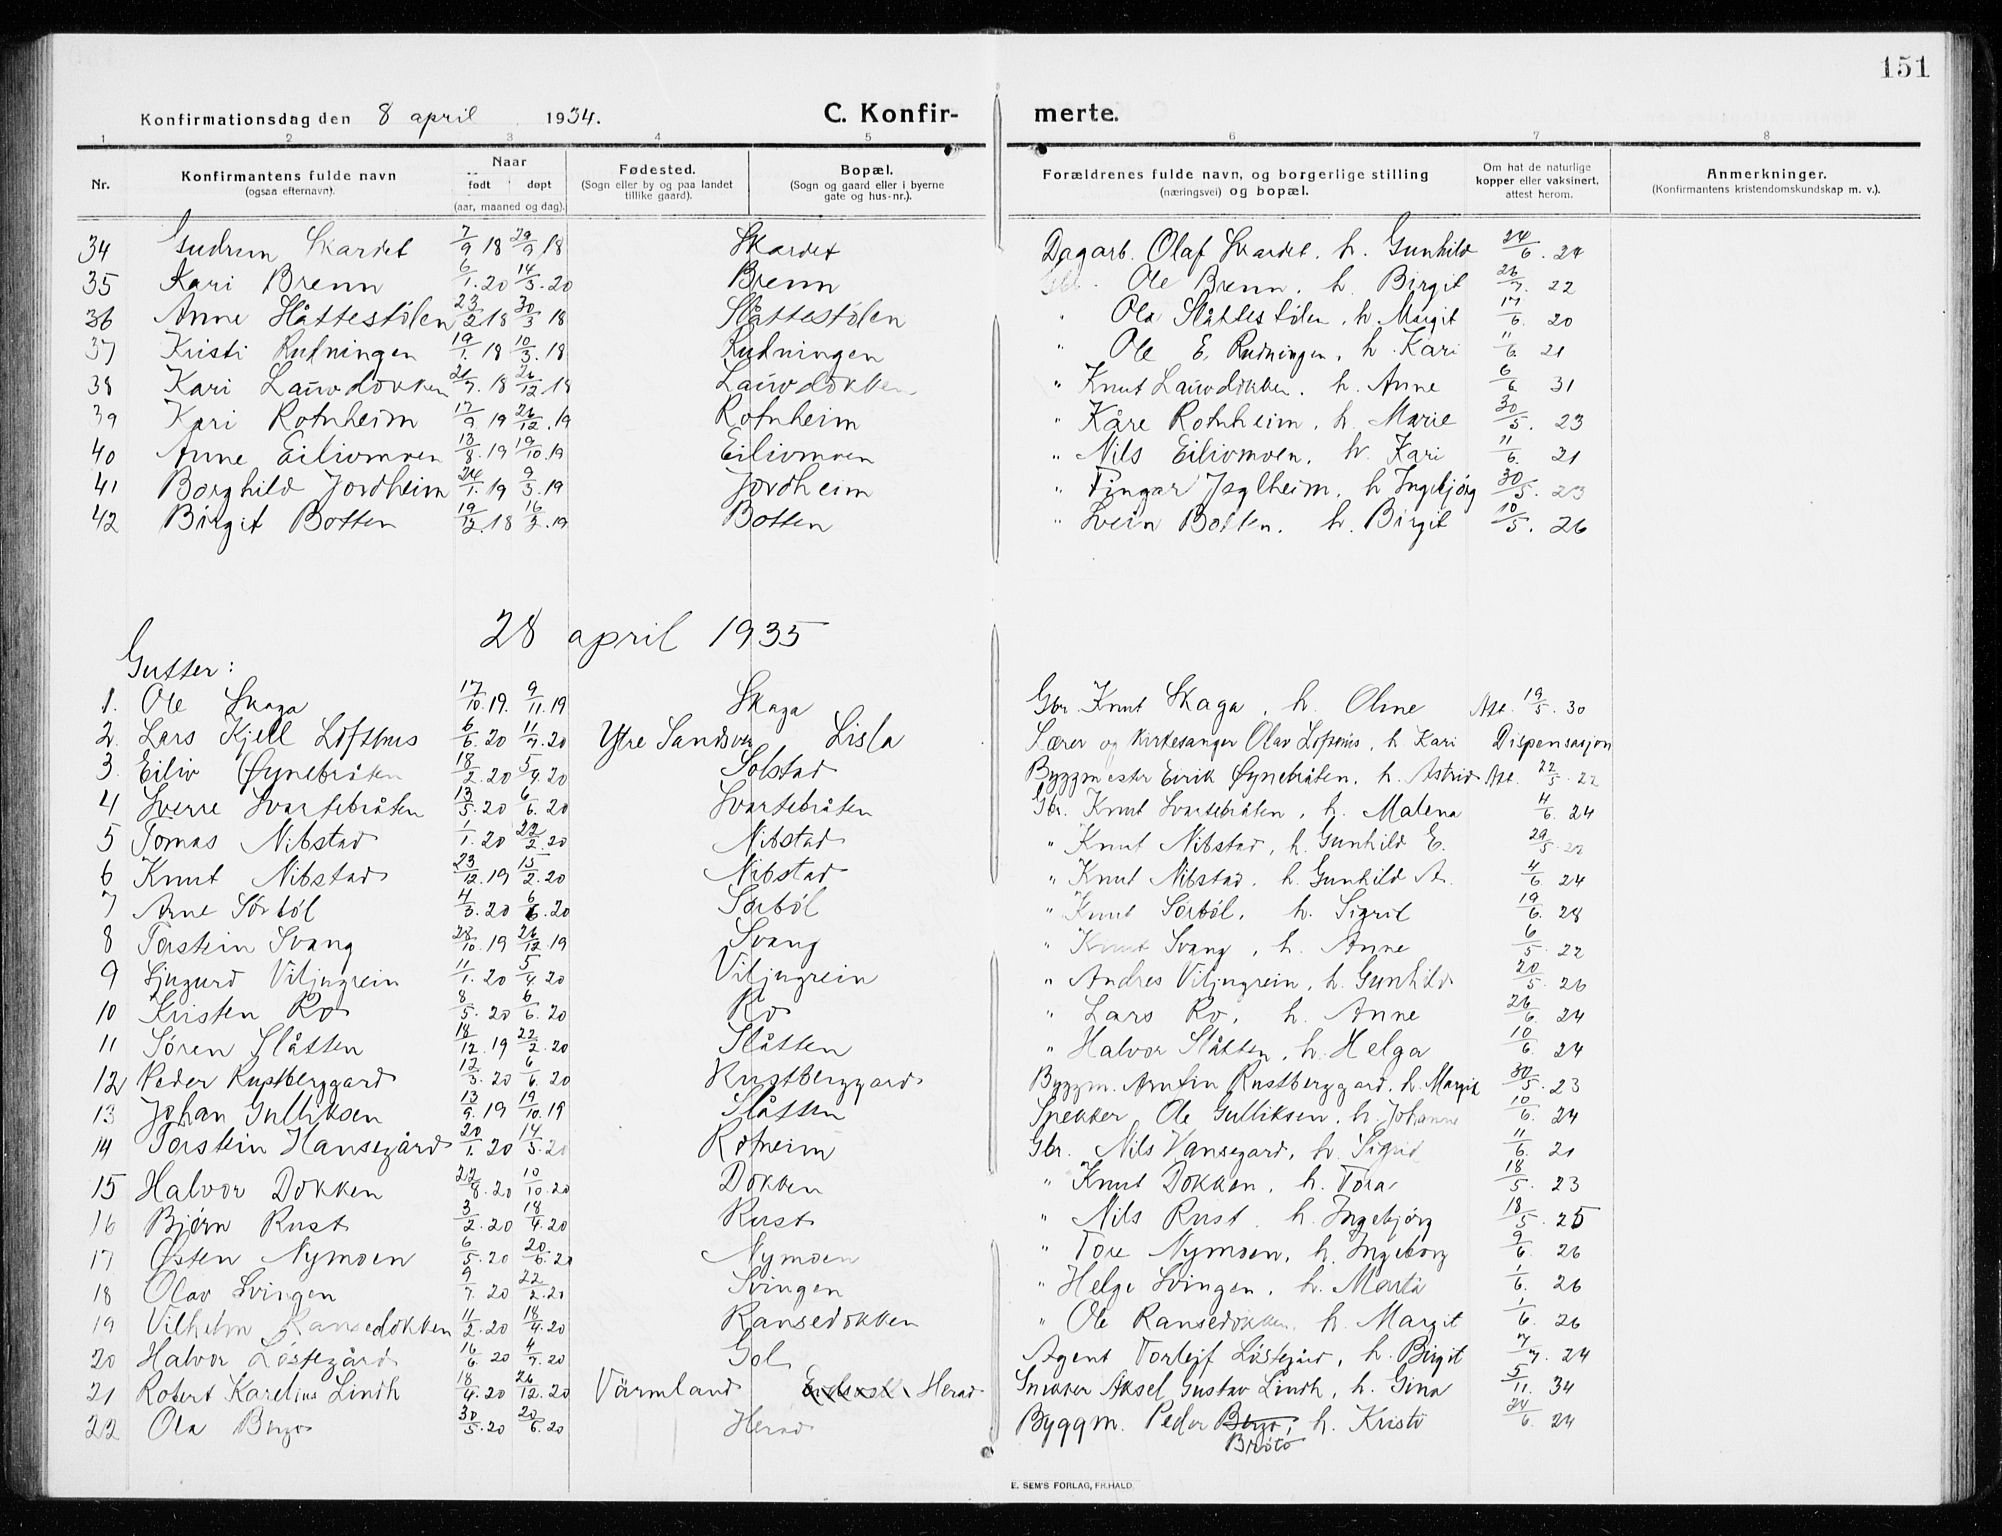 151
Konfirmationsdag den 8 april 1934. C. Konfir- merte.
1 2 3 4 5 6 7 8
Nr. Konfirmantens fulde navn (ogsaa efternavn). Naar født døpt (aar, maaned og dag). Fødested. (Sogn eller by og paa landet tillike gaard). Bopæl. (Sogn og gaard eller i byerne gate og hus-nr.). Forældrenes fulde navn, og borgerlige stilling (næringsvei) og bopæl. Om hat de naturlige kopper eller vaksinert, attest herom. Anmerkninger. (Konfirmantens kristendomskundskap m. v.).
34 Gudrun Skardet 7/9 18 29/9 18 Skardet Dagarb. Olaf Skardet. h. Gunhild 24/6. 24
35 Kari Brenn 6/1. 20 14/3. 20 Brenn Ole Brenn. h. Birgit 26/7. 22
36 Anne Slåttestølen 23/2 18 30/3 18 Slåttestølen " Ola Slåttestølen. h. Margit 17/6. 20
37 Kristi Rudningen 19/1. 18 10/3. 18 Rudningen " Ole E. Rudningen. h. Kari 11/6. 21
38 Kari Lauvdokken 21/7. 18 26/12. 18 Lauvdokken " Knut Lauvdokken. h. Anne 6/6 31
39 Kari Rotnheim 17/9 19 26/12. 19 Rotnheim " Kåre Rotnheim. h. Marie 30/5. 23
40 Anne Eilivmoen 13/8. 19 19/10. 19 Eilivmoen " Nils Eilivmoen. h. Kari 11/6. 21
41 Borghild Jordheim 24/1. 19 9/3. 19 Jordheim " Fingar Jordheim. h. Ingebjørg 30/5. 23
42 Birgit Botten 19/12. 18 16/2. 19 Botten " Svein Botten. h. Birgit 10/5. 26
28 april 1935
Gutter:
1. Ole Skaga 17/10. 19. 9/11. 19 Skaga Gbr. Knut Skaga. h. Oline Att. 19/5. 30
2. Lars Kjell Lofthus 6/6. 20 11/7. 20 Ytre Sandsvær Lisla Lærer og kirkesanger Olav Lofthus, h. Kari Dispensasjon
3. Eiliv Øynebråten 18/2. 20 5/4. 20 Solstad Byggmester Eirik Øynebråten. h. Astrid Att. 22/5. 22
4 Sverre Svartebråten 13/5. 20 6/6. 20 Svartebråten Gbr. Knut Svartebråten. h. Malena 4/6. 24
5 Tomas Nibstad 1/1. 20 22/2. 20 Nibstad " Knut Nibstad, h. Gunhild E. 29/5. 22
6 Knut Nibstad 23/12. 19 15/2. 20 Nibstad " Knut Nibstad. h. Gunhild A. 4/6. 24
7 Arne Sørbøl 4/3. 20 6/6. 20 Sørbøl " Knut Sørbøl. h. Sigrid 19/6. 28
8 Torstein Svang 28/10. 19 26/12. 19 Svang " Knut Svang. h. Anne 6/5. 22
9 Sjugurd Viljugrein 11/1. 20 5/4. 20 Viljugrein " Andres Viljugrein. h. Gunhild 20/5. 26
10 Kristen Ro 8/5. 20 6/6. 20 Ro " Lars Ro. h. Anne 26/6. 24
11 Søren Slåtten 18/12. 19 22/2. 20 Slåtten " Halvor Slåtten, h. Helga 10/6. 24
12 Peder Rustberggard 12/3. 20 6/6. 20 Rustberggard Byggm. Arnfin Rustberggard. h. Margit 30/5. 23
13 Johan Gulliksen 13/9. 19 19/10. 19 Slåtten Snekker Ole Gulliksen. h. Johanne 10/6. 24
14 Torstein Hansegård 20/1. 20 14/3. 20 Rotneim Gbr. Nils Hansegard. h. Sigrid 11/6. 21
15 Halvor Dokken 22/8. 20 10/10. 20 Dokken " Knut Dokken. h. Tora 18/5. 23
16 Bjørn Rust 3/2. 20 18/4. 20 Rust " Nils Rust. h. Ingebjørg 18/5. 25
17 Østen Nymoen 6/5. 20 20/6. 20 Nymoen " Tore Nymoen. h. Ingeborg 9/6. 26
18 Olav Svingen 9/7. 20 22/2. 20 Svingen " Helge Svingen. h. Marta 1/6. 26
19 Vilhelm Ransedokken 11/2. 20 18/4. 20 Ransedokken " Ole Ransedokken. h. Margit 1/6. 26
20 Halvor Løstegård 16/6. 20 4/7. 20 Gol Agent Torleif Løstegård, h. Birgit 7/7. 24
21 Robert Karelius Lindh 18/4. 20 26/12. 20 Värmland Herad Snekker Aksel Gustav Lindh, h. Gina 5/11. 34
22 Ola Bergo 30/5. 20 20/6. 20 Herad Byggm. Peder Bergo, h. Kristi 24/6. 24
Brøto
E. SEM'S FORLAG, FR.HALD.